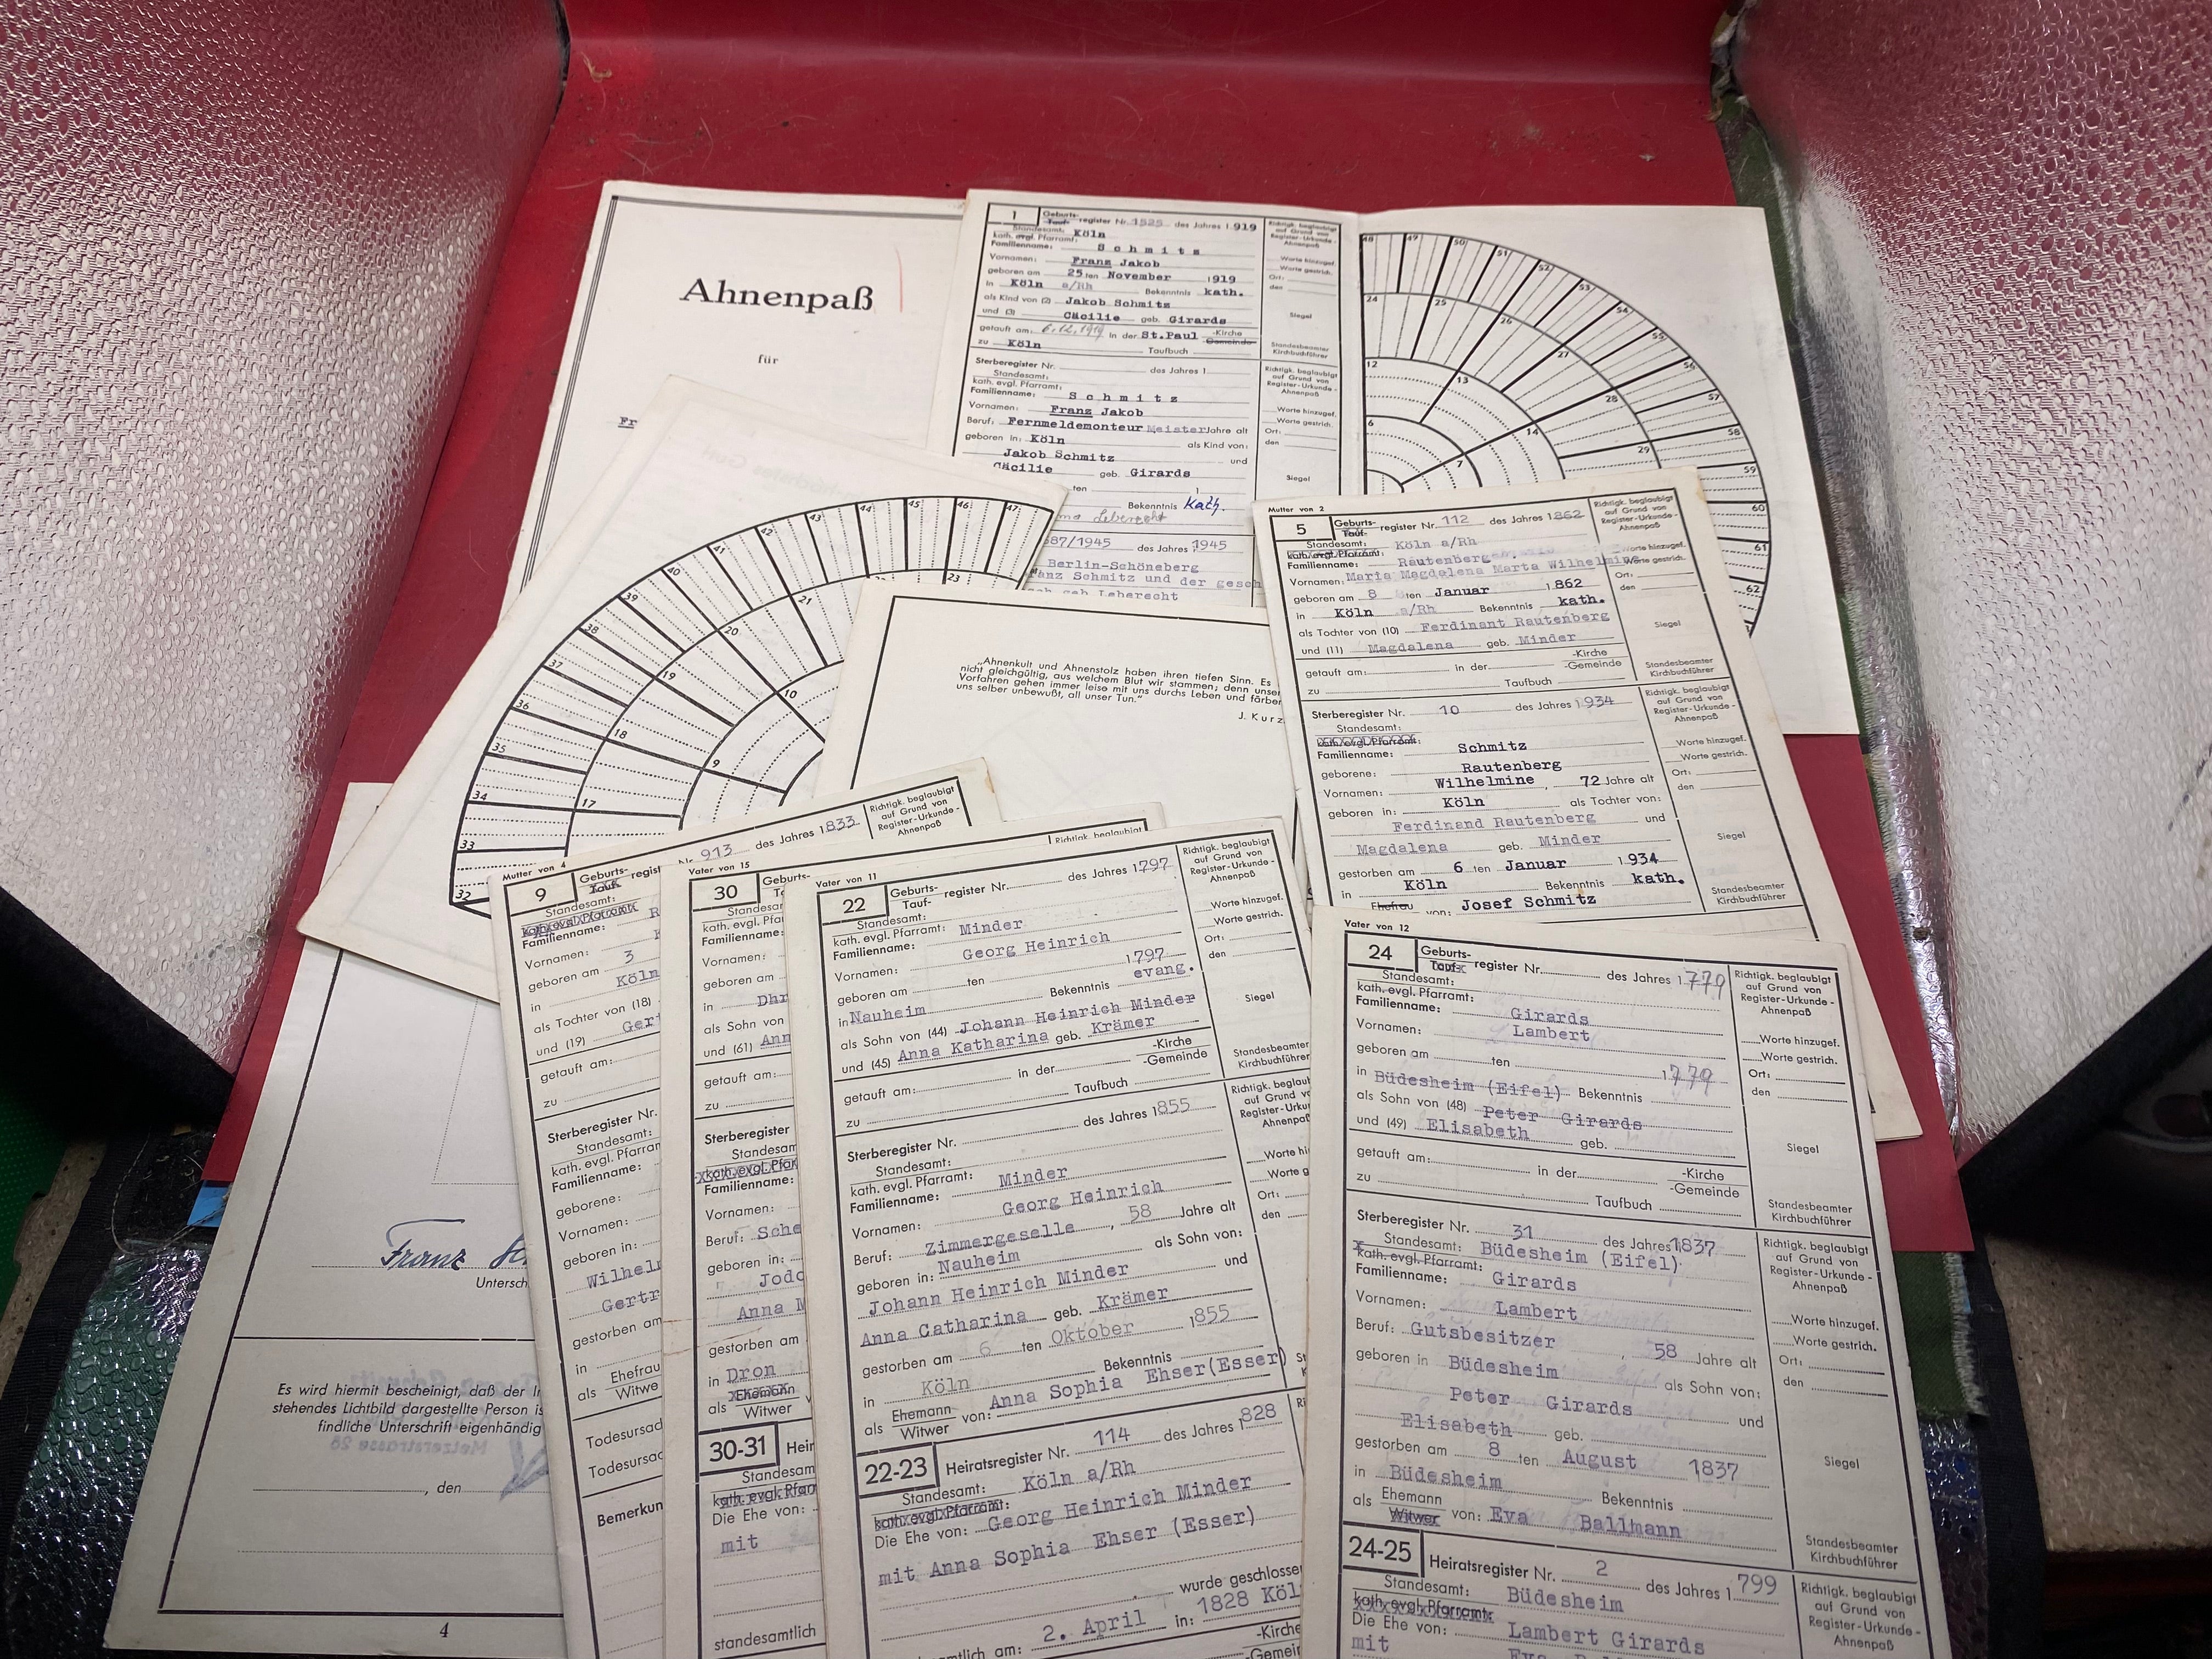 Ahnenpaß
für
Fr
1
Geburts-
Tauf- register Nr. 1525 des Jahres 1919
Standesamt: Köln
kath. evgl. Pfarramt:
Familienname: Schmitz
Vornamen: Franz Jakob
geboren am 25ten November 1919
in Köln a/Rh Bekenntnis kath.
als Kind von (2) Jakob Schmitz
und (3) Cäcilie geb. Girards
getauft am: 6.12.1919 in der St.Paul -Kirche
-Gemeinde
zu Köln Taufbuch
Sterberegister Nr. des Jahres 1
Standesamt:
kath. evgl. Pfarramt:
Familienname: Schmitz
Vornamen: Franz Jakob
Beruf: Fernmeldemonteur Meister Jahre alt
geboren in: Köln als Kind von:
Jakob Schmitz und
Cäcilie geb. Girards
ten 1
Bekenntnis Kath.
Leberecht
687/1945 des Jahres 1945
Berlin-Schöneberg
anz Schmitz und der gesch
geb Leberecht
Richtigk. beglaubigt
auf Grund von
Register-Urkunde-
Ahnenpaß
Worte hinzugef.
Worte gestrich.
Ort:
den
Siegel
Standesbeamter
Kirchbuchführer
Richtigk. beglaubigt
auf Grund von
Register-Urkunde-
Ahnenpaß
Worte hinzugef.
Worte gestrich.
Ort:
den
Siegel
48 49 50 51 52 53 54 55 56 57 58 59 60 61 62
24 25 26 27 28 29
12 13 14
6 7
32 33 34 35 36 37 38 39 40 41 42 43 44 45 46 47
17 18 19 20 21 23
9 10
„Ahnenkult und Ahnenstolz haben ihren tiefen Sinn. Es
nicht gleichgültig, aus welchem Blut wir stammen; denn unser
Vorfahren gehen immer leise mit uns durchs Leben und färber
uns selber unbewußt, all unser Tun."
J. Kurz
Mutter von 2
5
Geburts-
Tauf- register Nr. 112 des Jahres 1862
Standesamt: Köln a/Rh
kath. evgl. Pfarramt:
Familienname: Rautenberg
Vornamen: Maria Magdalena Marta Wilhelmine
geboren am 8 ten Januar 1862
in Köln a/Rh Bekenntnis kath.
als Tochter von (10) Ferdinant Rautenberg
und (11) Magdalena geb. Minder
getauft am: in der -Kirche
-Gemeinde
zu Taufbuch
Sterberegister Nr. 10 des Jahres 1934
Standesamt:
kath. evgl. Pfarramt:
Familienname: Schmitz
geborene: Rautenberg
Vornamen: Wilhelmine, 72 Jahre alt
geboren in: Köln als Tochter von:
Ferdinand Rautenberg und
Magdalena geb. Minder
gestorben am 6 ten Januar 1934
in Köln Bekenntnis kath.
Ehefrau von: Josef Schmitz
Richtigk. beglaubigt
auf Grund von
Register-Urkunde-
Ahnenpaß
Worte hinzugef.
Worte gestrich.
Ort:
den
Siegel
Standesbeamter
Kirchbuchführer
Richtigk. beglaubigt
auf Grund von
Register-Urkunde-
Ahnenpaß
Worte hinzugef.
Worte gestrich.
Ort:
den
Siegel
Standesbeamter
Kirchbuchführer
Franz Sch
Untersch
Es wird hiermit bescheinigt, daß der In
stehendes Lichtbild dargestellte Person is
findliche Unterschrift eigenhändig
Metzerstrasse 28
, den
4
Mutter von 4
9
Geburts-
Tauf- regist Nr. 913 des Jahres 1833
Standesamt:
kath. evgl. Pfarramt:
Familienname: R
Vornamen:
geboren am 3
in Köln
als Tochter von (18)
und (19) Gert
getauft am:
zu
Sterberegister Nr.
Standesamt:
kath. evgl. Pfarram
Familienname:
geborene:
Vornamen:
geboren in:
Wilhelm
Gertr
gestorben am
in
als Ehefrau
Witwe
Todesursac
Todesursac
Bemerkun
Richtigk. beglaubigt
auf Grund von
Register-Urkunde-
Ahnenpaß
Vater von 15
30
Geburts-
Standesam
kath. evgl. Pfa
Familienname:
Vornamen:
geboren am
in Dhr
als Sohn von
und (61) Ann
getauft am:
zu
Sterberegister
Standesam
kath. evgl. Pfar
Familienname:
Vornamen:
Beruf: Sche
geboren in:
Jodo
Anna M
gestorben am
in Dron
als Ehemann
Witwer
30-31 Heir
Standesam
kath. evgl. Pfarr
Die Ehe von:
mit
standesamtlich
Richtigk. beglaubigt
Vater von 11
22
Geburts-
Tauf- register Nr. des Jahres 1797
Standesamt:
kath. evgl. Pfarramt:
Familienname: Minder
Vornamen: Georg Heinrich
geboren am ten 1797
in Nauheim Bekenntnis evang.
als Sohn von (44) Johann Heinrich Minder
und (45) Anna Katharina geb. Krämer
getauft am: in der -Kirche
-Gemeinde
zu Taufbuch
Sterberegister Nr. des Jahres 1855
Standesamt:
kath. evgl. Pfarramt:
Familienname: Minder
Vornamen: Georg Heinrich
Beruf: Zimmergeselle, 58 Jahre alt
geboren in: Nauheim als Sohn von:
Johann Heinrich Minder und
Anna Catharina geb. Krämer
gestorben am 6 ten Oktober 1855
in Köln Bekenntnis
als Ehemann
Witwer von: Anna Sophia Ehser(Esser)
22-23 Heiratsregister Nr. 114 des Jahres 1828
Standesamt: Köln a/Rh
kath. evgl. Pfarramt:
Die Ehe von: Georg Heinrich Minder
mit Anna Sophia Ehser (Esser)
wurde geschlossen
lich am: 2. April in: 1828 Köl
-Kirche
-Gemein
Richtigk. beglaubigt
auf Grund von
Register-Urkunde-
Ahnenpaß
Worte hinzugef.
Worte gestrich.
Ort:
den
Siegel
Standesbeamter
Kirchbuchführer
Richtigk. beglau
auf Grund vo
Register-Urku
Ahnenpaß
Worte hi
Worte g
Ort:
den
Vater von 12
24
Geburts-
Tauf- register Nr. des Jahres 1779
Standesamt:
kath. evgl. Pfarramt:
Familienname: Girards
Vornamen: Lambert
geboren am ten 1779
in Büdesheim (Eifel) Bekenntnis
als Sohn von (48) Peter Girards
und (49) Elisabeth geb.
getauft am: in der -Kirche
-Gemeinde
zu Taufbuch
Sterberegister Nr. 31 des Jahres 1837
Standesamt: Büdesheim (Eifel)
kath. evgl. Pfarramt:
Familienname: Girards
Vornamen: Lambert
Beruf: Gutsbesitzer, 58 Jahre alt
geboren in Büdesheim als Sohn von:
Peter Girards und
Elisabeth geb.
gestorben am 8 ten August 1837
in Büdesheim Bekenntnis
als Ehemann
Witwer von: Eva Ballmann
24-25 Heiratsregister Nr. 2 des Jahres 1799
Standesamt: Büdesheim
kath. evgl. Pfarramt:
Die Ehe von: Lambert Girards
mit
Richtigk. beglaubigt
auf Grund von
Register-Urkunde-
Ahnenpaß
Worte hinzugef.
Worte gestrich.
Ort:
den
Siegel
Standesbeamter
Kirchbuchführer
Richtigk. beglaubigt
auf Grund von
Register-Urkunde-
Ahnenpaß
Worte hinzugef.
Worte gestrich.
Ort:
den
Siegel
Standesbeamter
Kirchbuchführer
Richtigk. beglaubigt
auf Grund von
Register-Urkunde-
Ahnenpaß